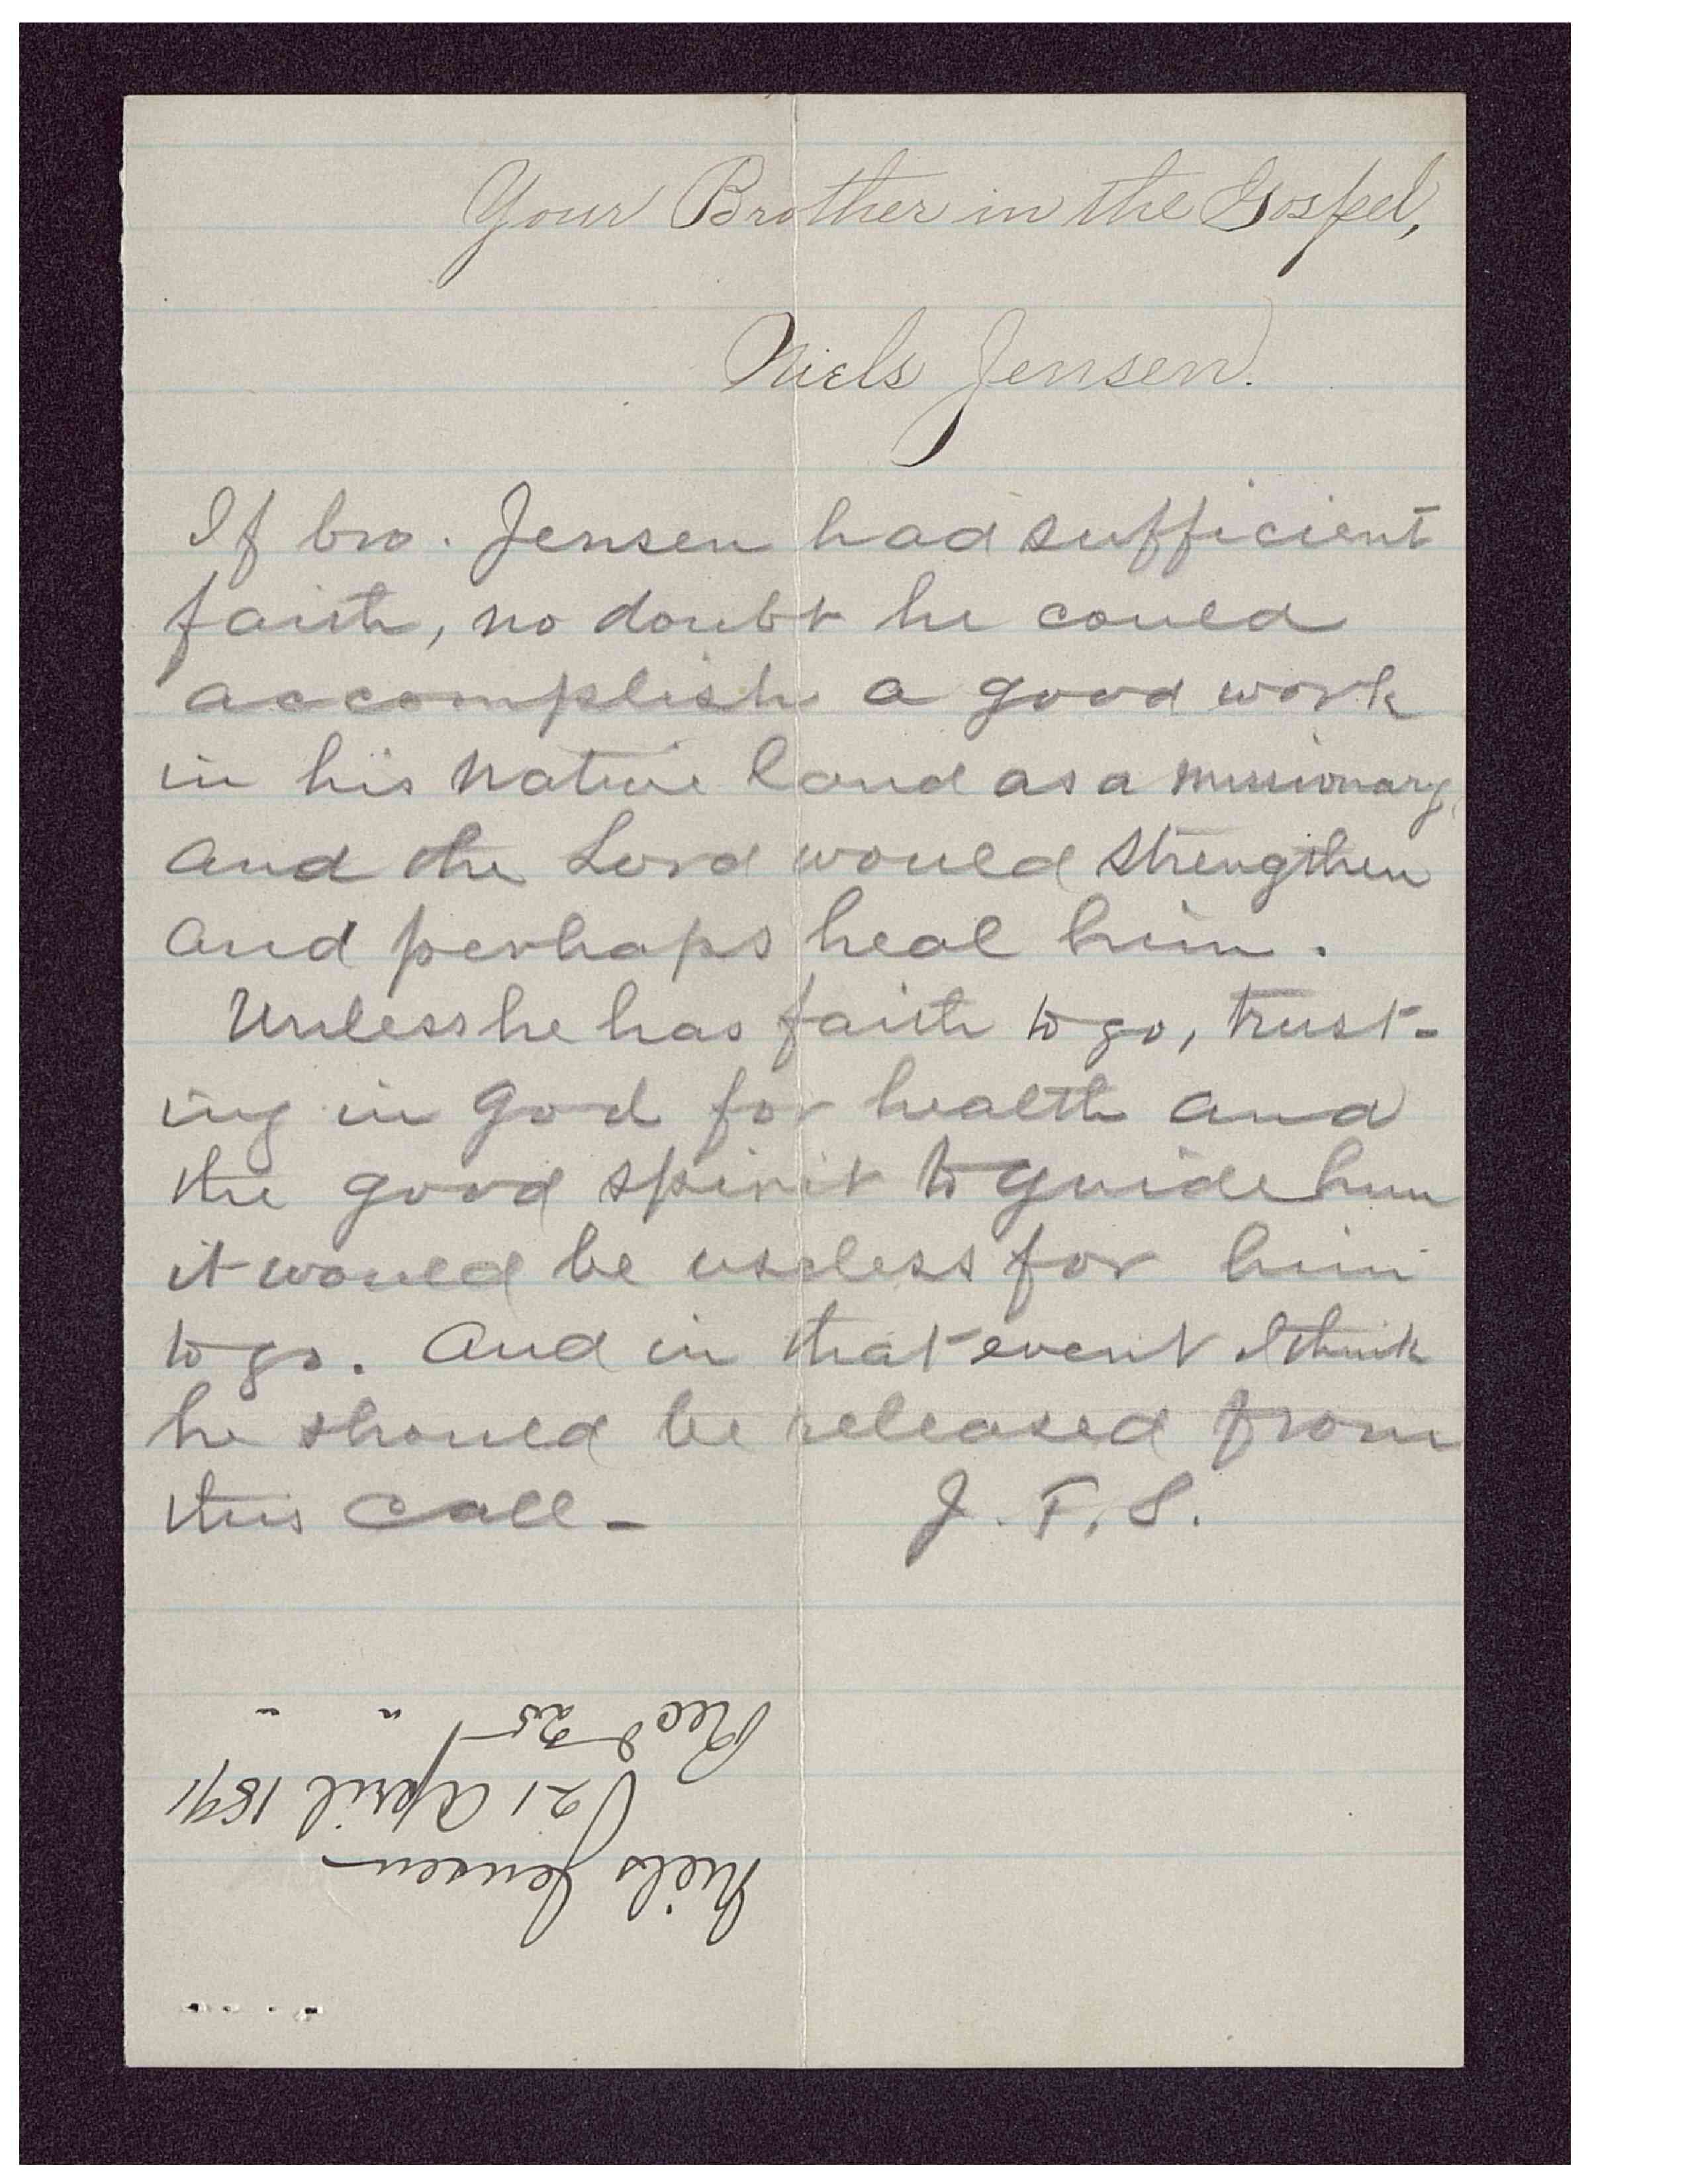 Your Brother in the Gospel,
Niels Jensen.
If bro. Jensen had sufficient
faith, no doubt he could
accomplish a good work
in his native land as a missionary
and the Lord would strengthen
and perhaps heal him.
Unless he has faith to go, trust-
ing in God for health and
the good spirit to guide him
it would be useless for him
to go. And in that event I think
he should be released from
this call-
J. F. S.
Niels Jensen
21 April 1891
Recd 25 " "